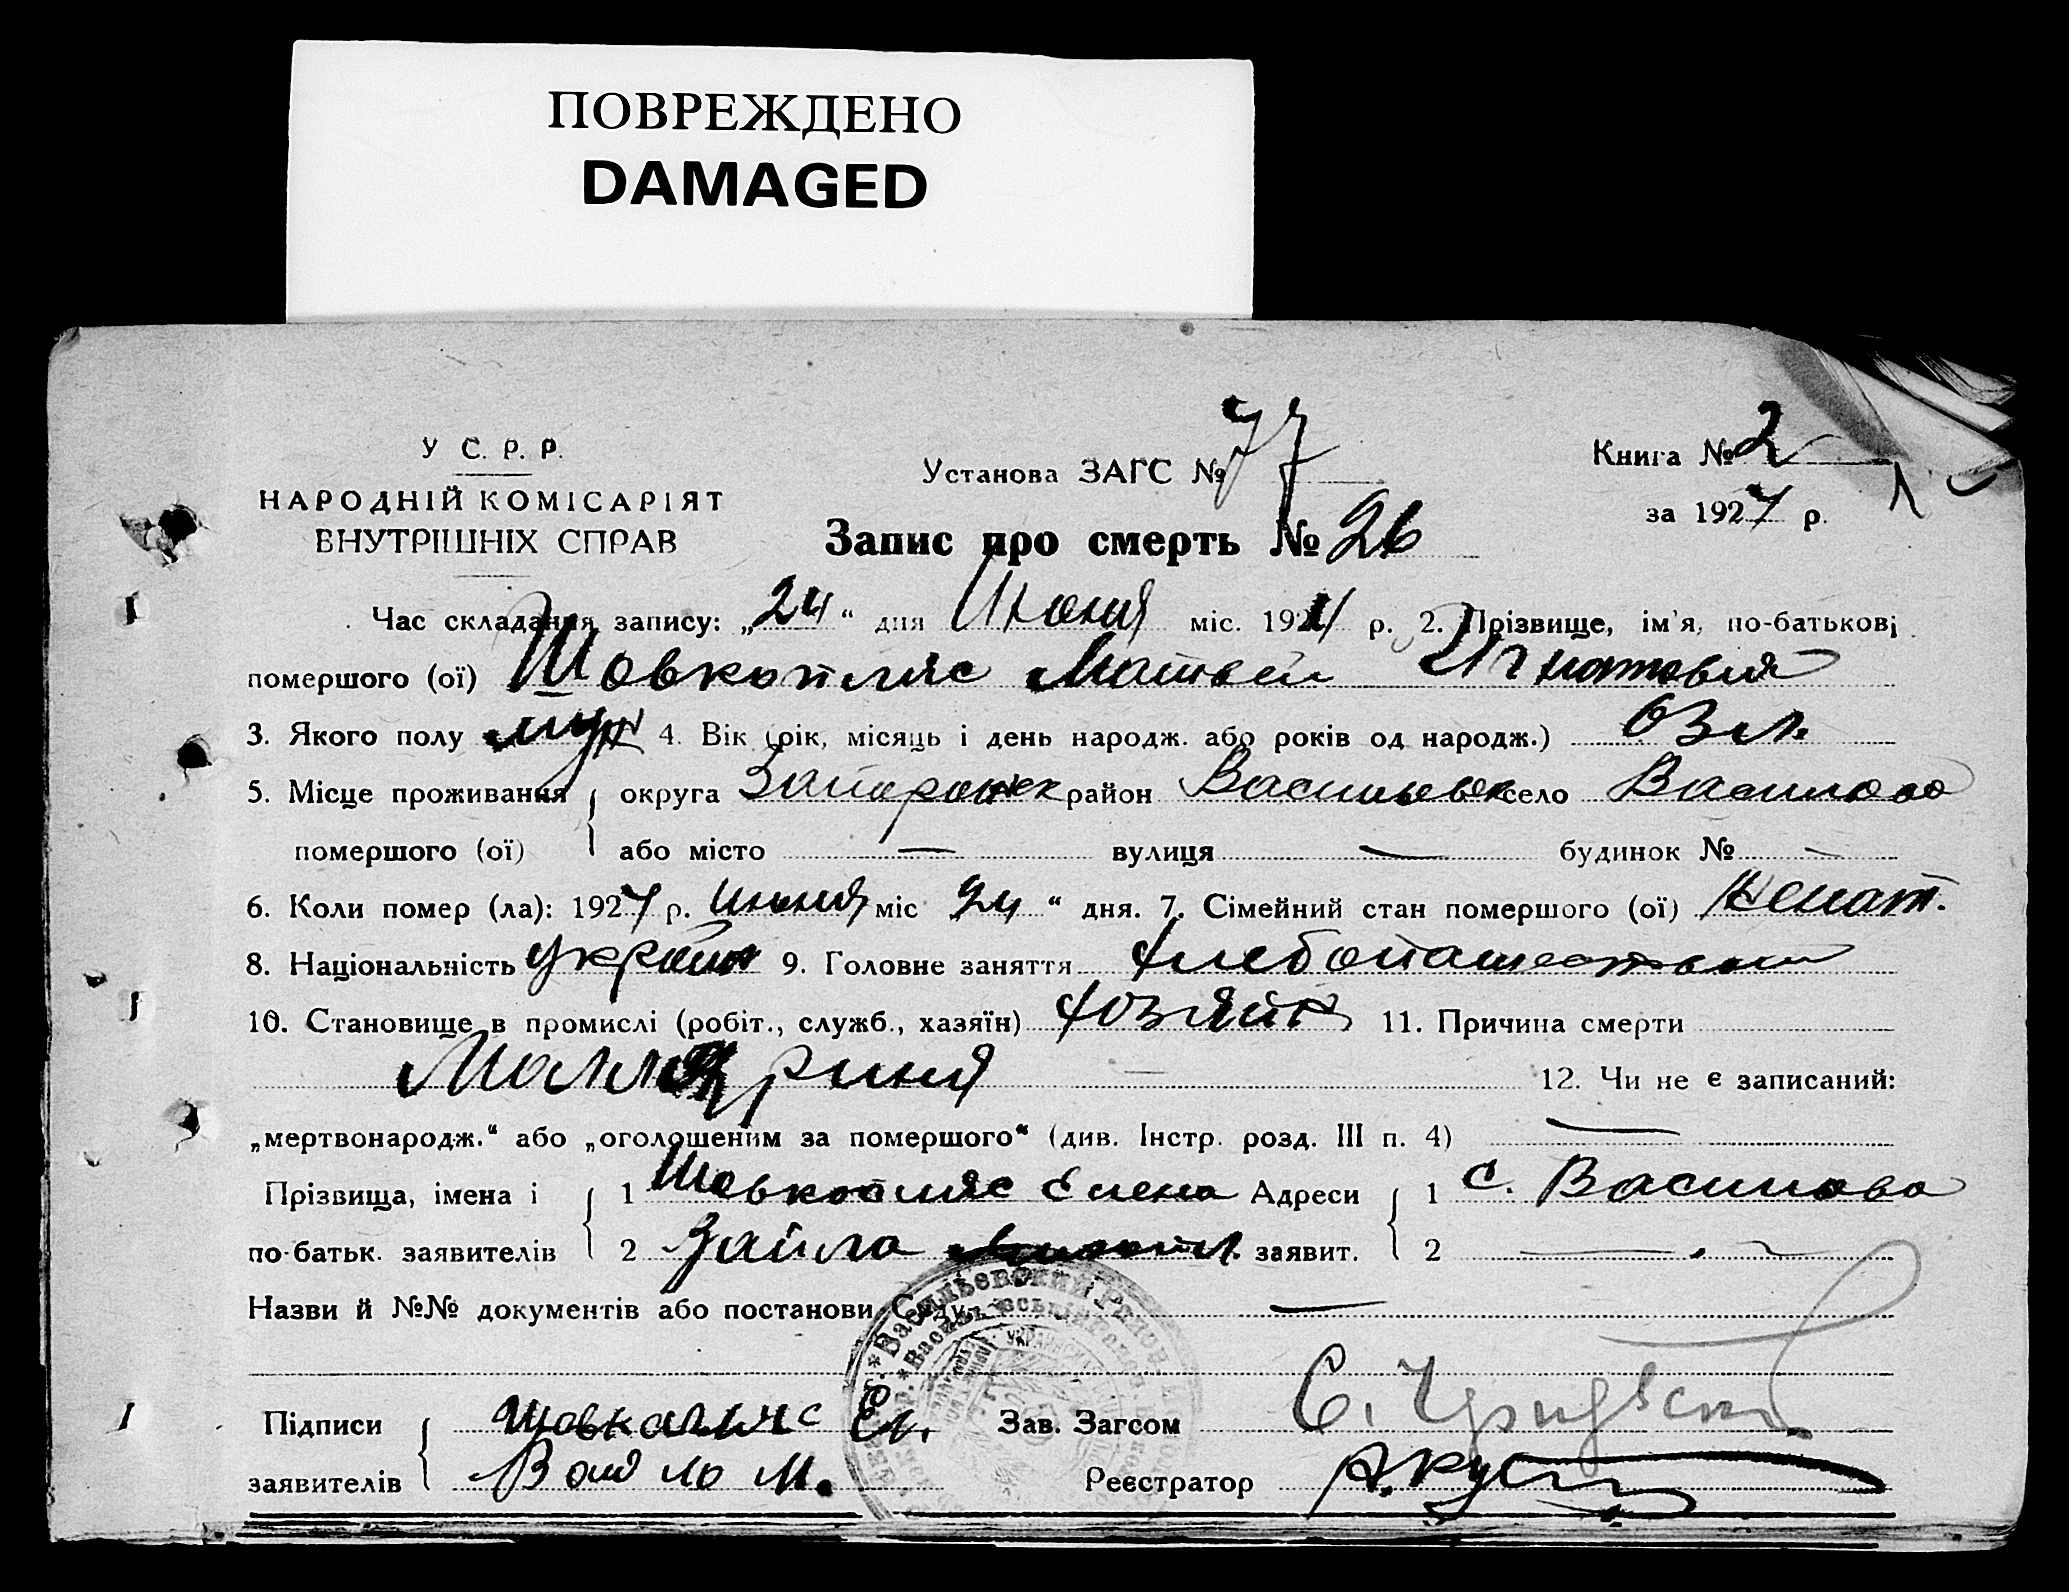 ПОВРЕЖДЕНО
DAMAGED
У С. Р. Р.
НАРОДНІЙ КОМІСАРІЯТ
ВНУТРІШНІХ СПРАВ
Установа ЗАГС № 77
Книга № 2
за 1927 р.
Запис про смерть № 26
Час складання запису: „24“ дня Июня міс. 1927 р. 2. Прізвище, ім'я, по-батькові
помершого (ої) Шовкопляс Матвей Игнатовия
3. Якого полу муж 4. Вік (рік, місяць і день народж. або років од народж.) 63 л.
5. Місце проживання округа Запорожск район Васильевск село Васильево
помершого (ої) або місто — вулиця — будинок № —
6. Коли помер (ла): 1927 р. июня міс 24 “ дня. 7. Сімейний стан помершого (ої)
8. Національність украин 9. Головне заняття хлебопашество
10. Становище в промислі (робіт., служб., хазяїн) хозяин 11. Причина смерти
12. Чи не є записаний:
„мертвонародж.“ або „оголошеним за помершого“ (див. Інстр. розд. III п. 4) —
Прізвища, імена і 1 Шовкопляс Елена Адреси 1 с. Васильево
по-батьк. заявителів 2 заявит. 2 — „ —
Назви й №№ документів або постанови Суду —
Підписи Шовкапляс Ел. Зав. Загсом С.
заявителів М. Реєстратор